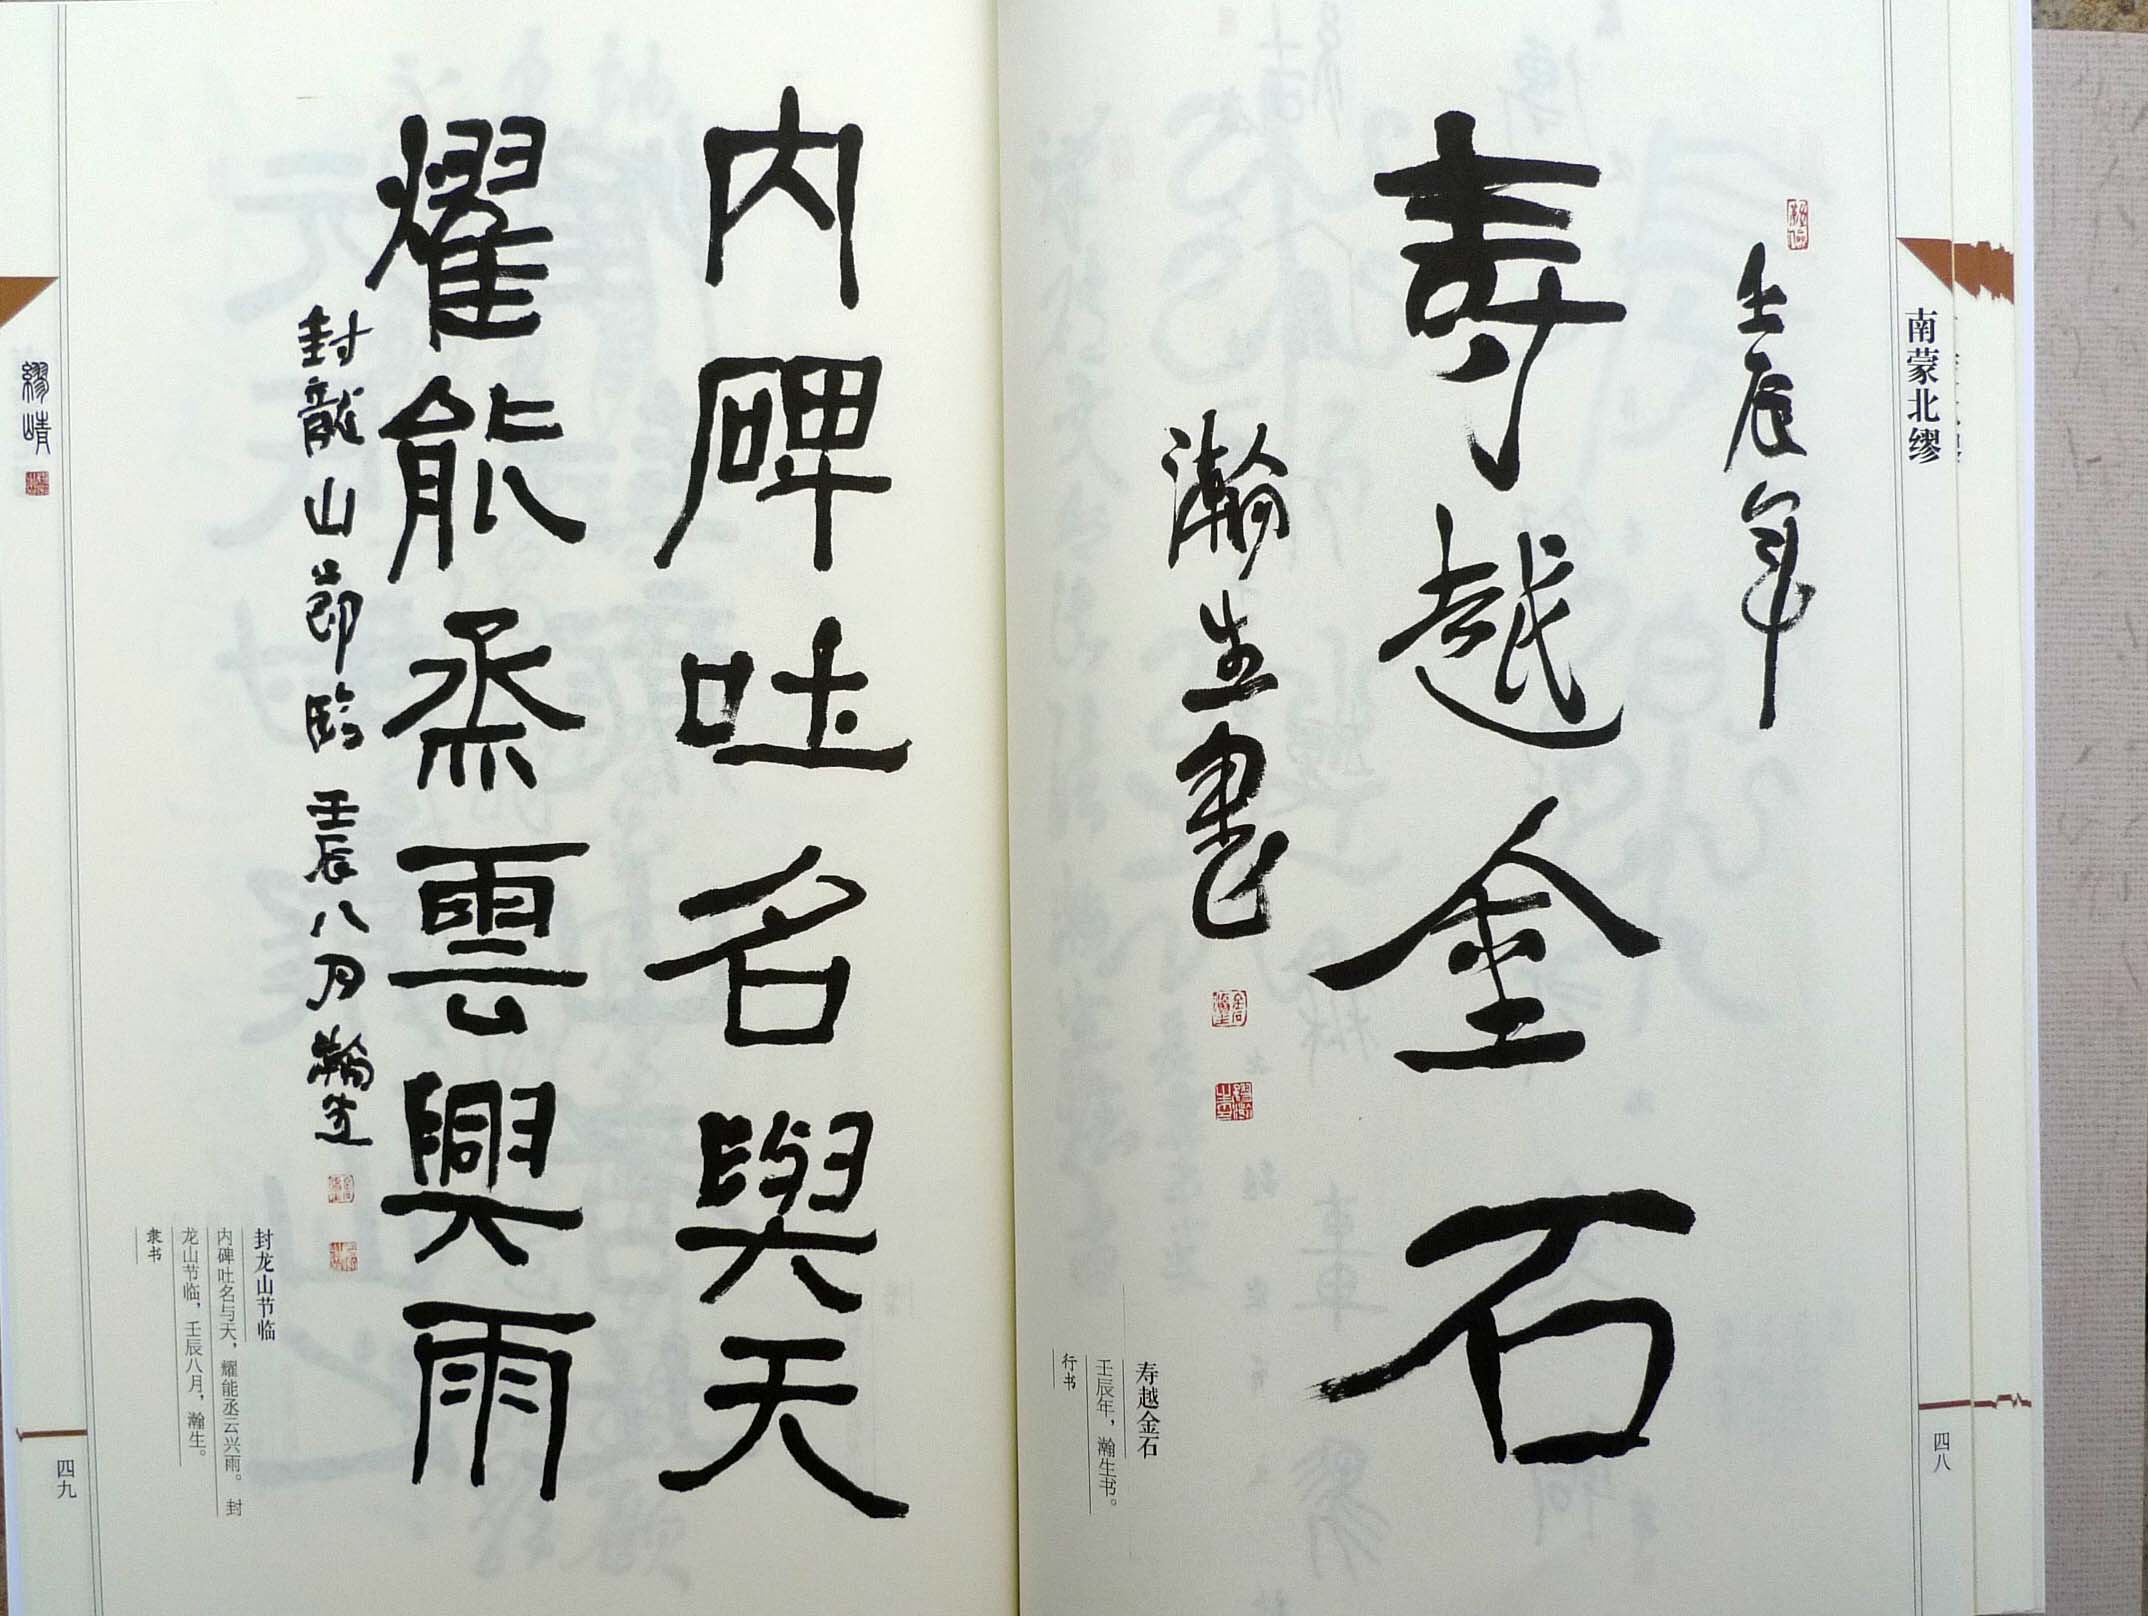 南蒙北缪
四八
壬辰年
寿越金石
瀚生书
寿越金石
壬辰年，瀚生书。
行书
内碑吐名與天
耀能烝雲興雨
封龍山節臨 壬辰八月 瀚生
封龙山节临
内碑吐名与天，耀能丞云兴雨。封
龙山节临，壬辰八月，瀚生。
隶书
四九